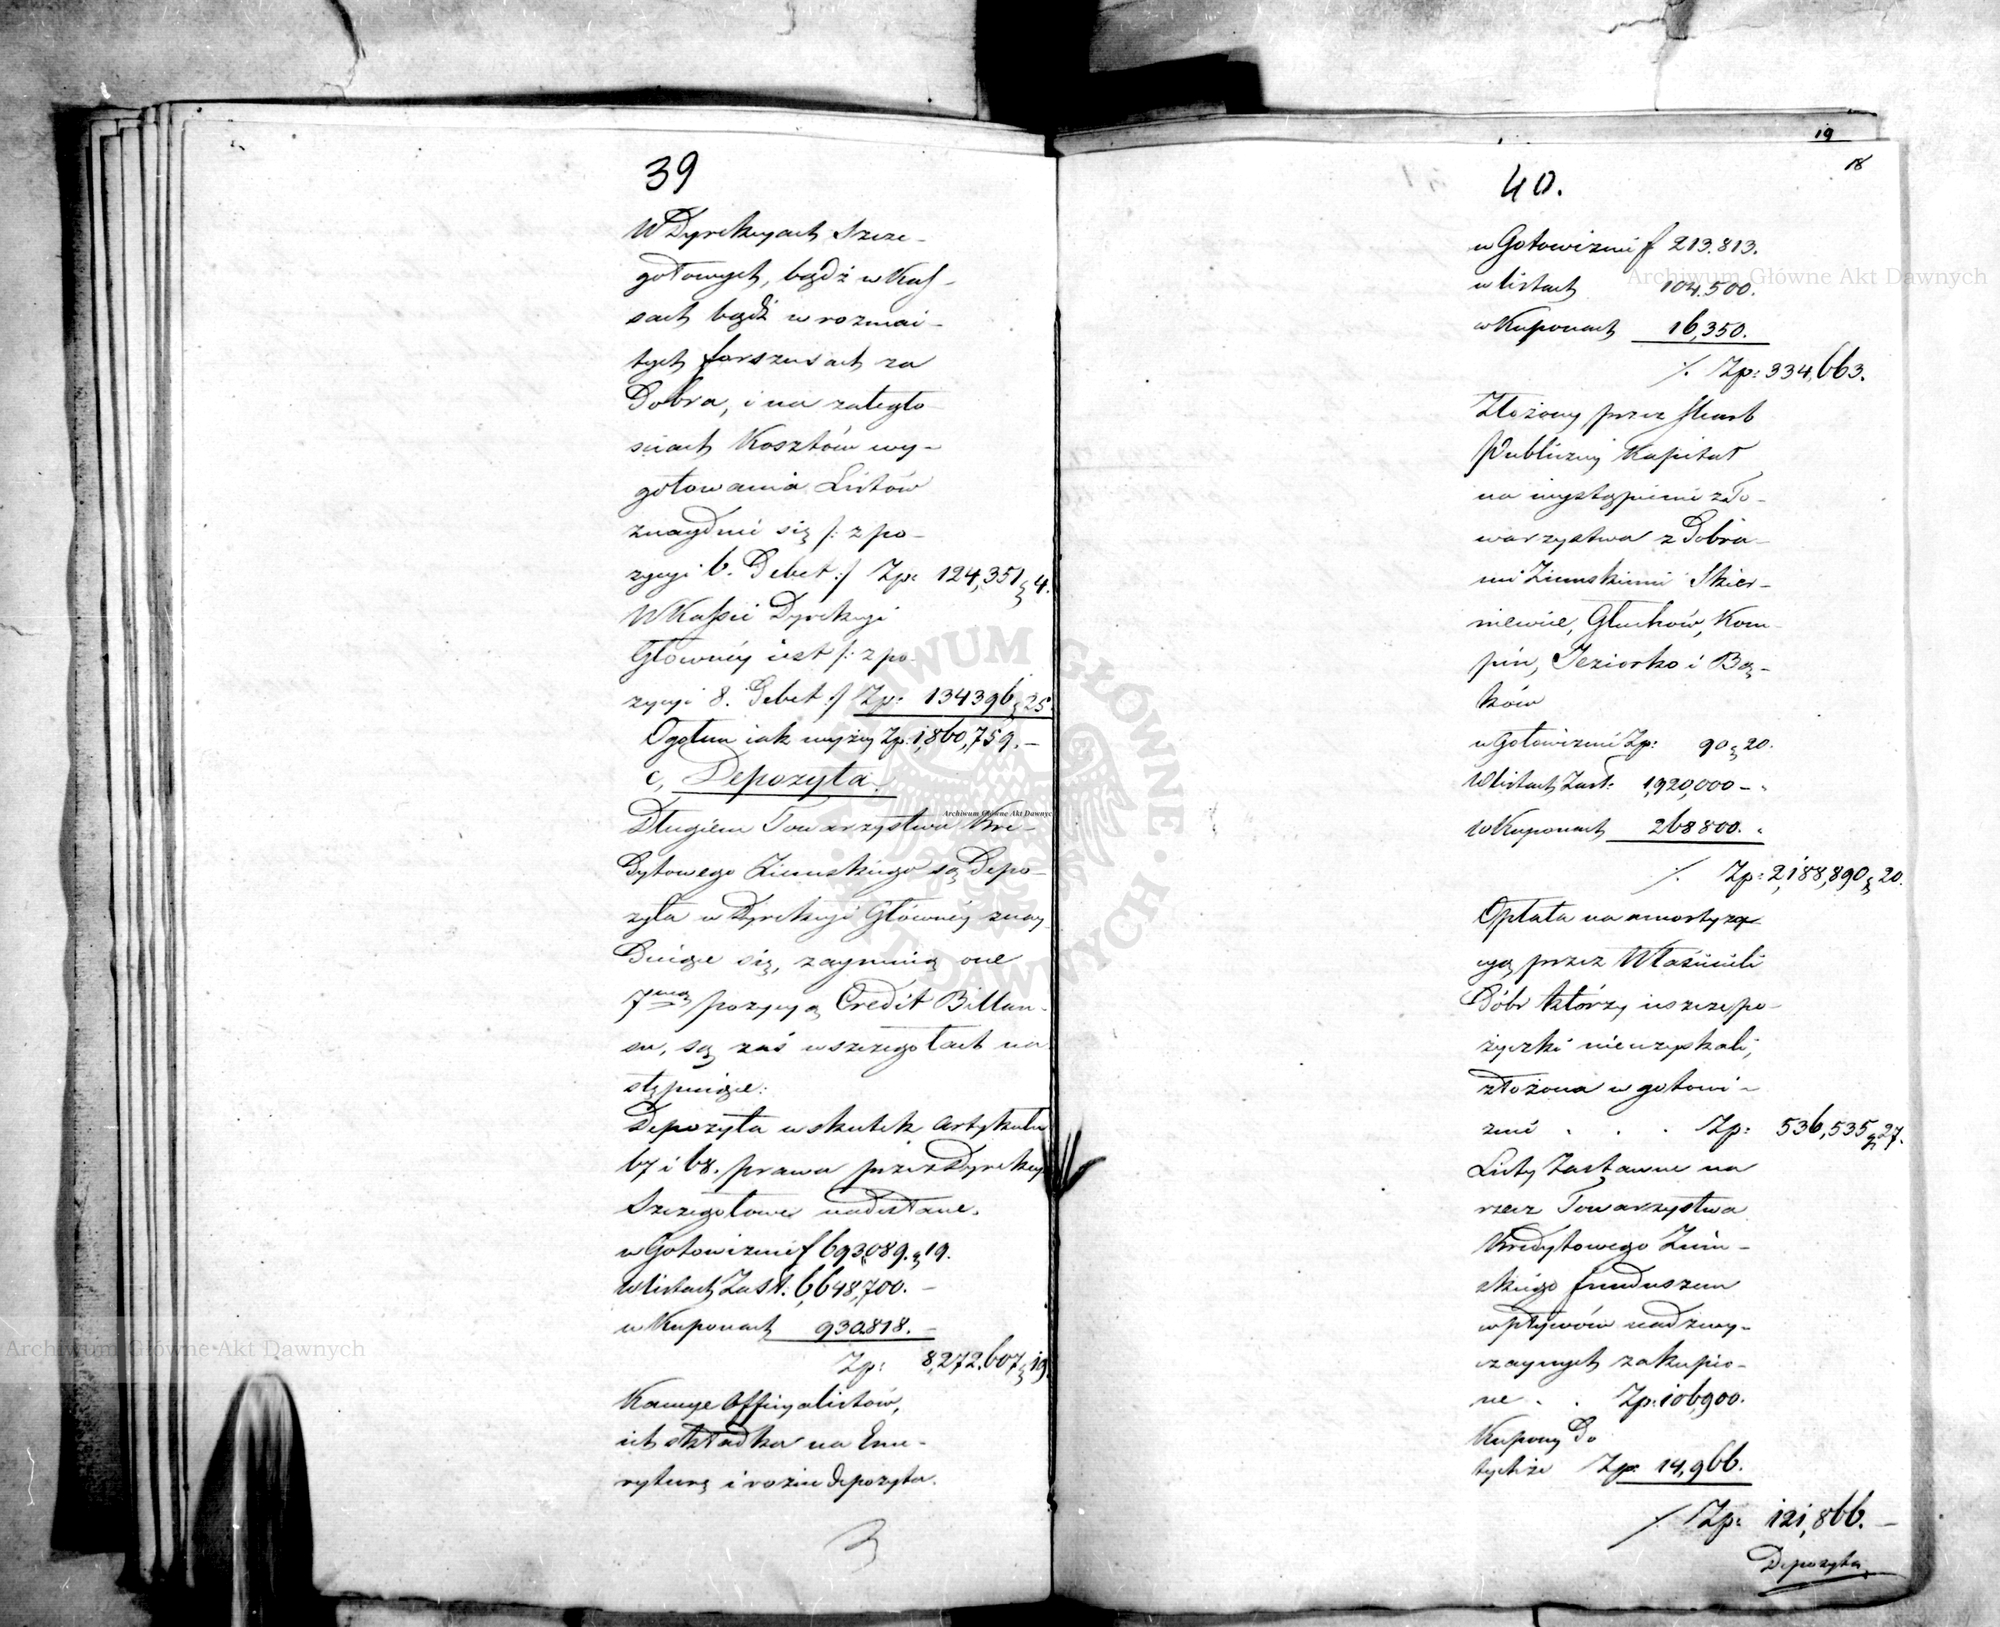 39
W Dyrekcyach Szcze-
gołowych, bądź w Kas-
sach bądź w rozmai-
tych forszusach za
Dobra, i na zaległo-
sciach Kosztów wy-
gotowania Listów
znayduie się /: z po-
zycyi 6. Debet :/ Zp: 124,351 g 4.
W Kassie Dyrekcyi
Głowney iest /: z po-
zycyi 8. Debet :/ Zp: 134396 g 25.
Ogołem iak wyżey Zp: 1,860,759. —
c, Depozyta.
Długiem Towarzystwa Kre-
dytowego Ziemskiego są Depo-
zyta w Dyrekcyi Głównéy znay-
duiące się, zaymuią one
7mą pozycyą Credit Billan-
su, są zaś w szczegołach na-
stępuiące:
Depozyta w skutek Artykułu
67 i 68. prawa przez Dyrekcye
Szczegołowe nadesłane.
w Gotowiznie f 693,089. g 19.
w listach Zast: 6,648,700. —
w Kuponach 930818. —
Zp: 8,272,607 g 19.
Kaucye Officyalistów,
ich składka na Eme-
ryturę i rożne depozyta.
40.
19
18
w Gotowiznie f 213.813.
w listach 104.500.
w Kuponach 16,350.
/. Zp: 334,663.
Złożony przez Skarb
Publiczny Kapitał
na wystąpienie z To-
warzystwa z Dobra-
mi Ziemskiemi Skier-
niewice, Głuchów, Kom-
pin, Jeziorko i Bą-
ków
w Gotowiznie Zp: 90 g 20.
W listach Zast: 1,920,000 — "
w Kuponach 268800. "
/. Zp: 2,188,890 g 20.
Opłata na amortyza-
cyą przez Właścicieli
Dóbr którzy ieszcze po-
życzki nieuzyskali,
złożona w gotowi-
znie . . . Zp: 536,535 g 27.
Listy Zastawne na
rzecz Towarzystwa
Kredytowego Ziem-
skiego funduszem
wpływów nadzwy-
czaynych zakupio-
ne . . Zp: 106,900.
Kupony do
tychże Zp: 14,966.
/. Zp: 121,866. —
Depozyta
Archiwum Główne Akt Dawnych
Archiwum Główne Akt Dawnych
Archiwum Główne Akt Dawnych
ARCHIWUM GŁÓWNE AKT DAWNYCH